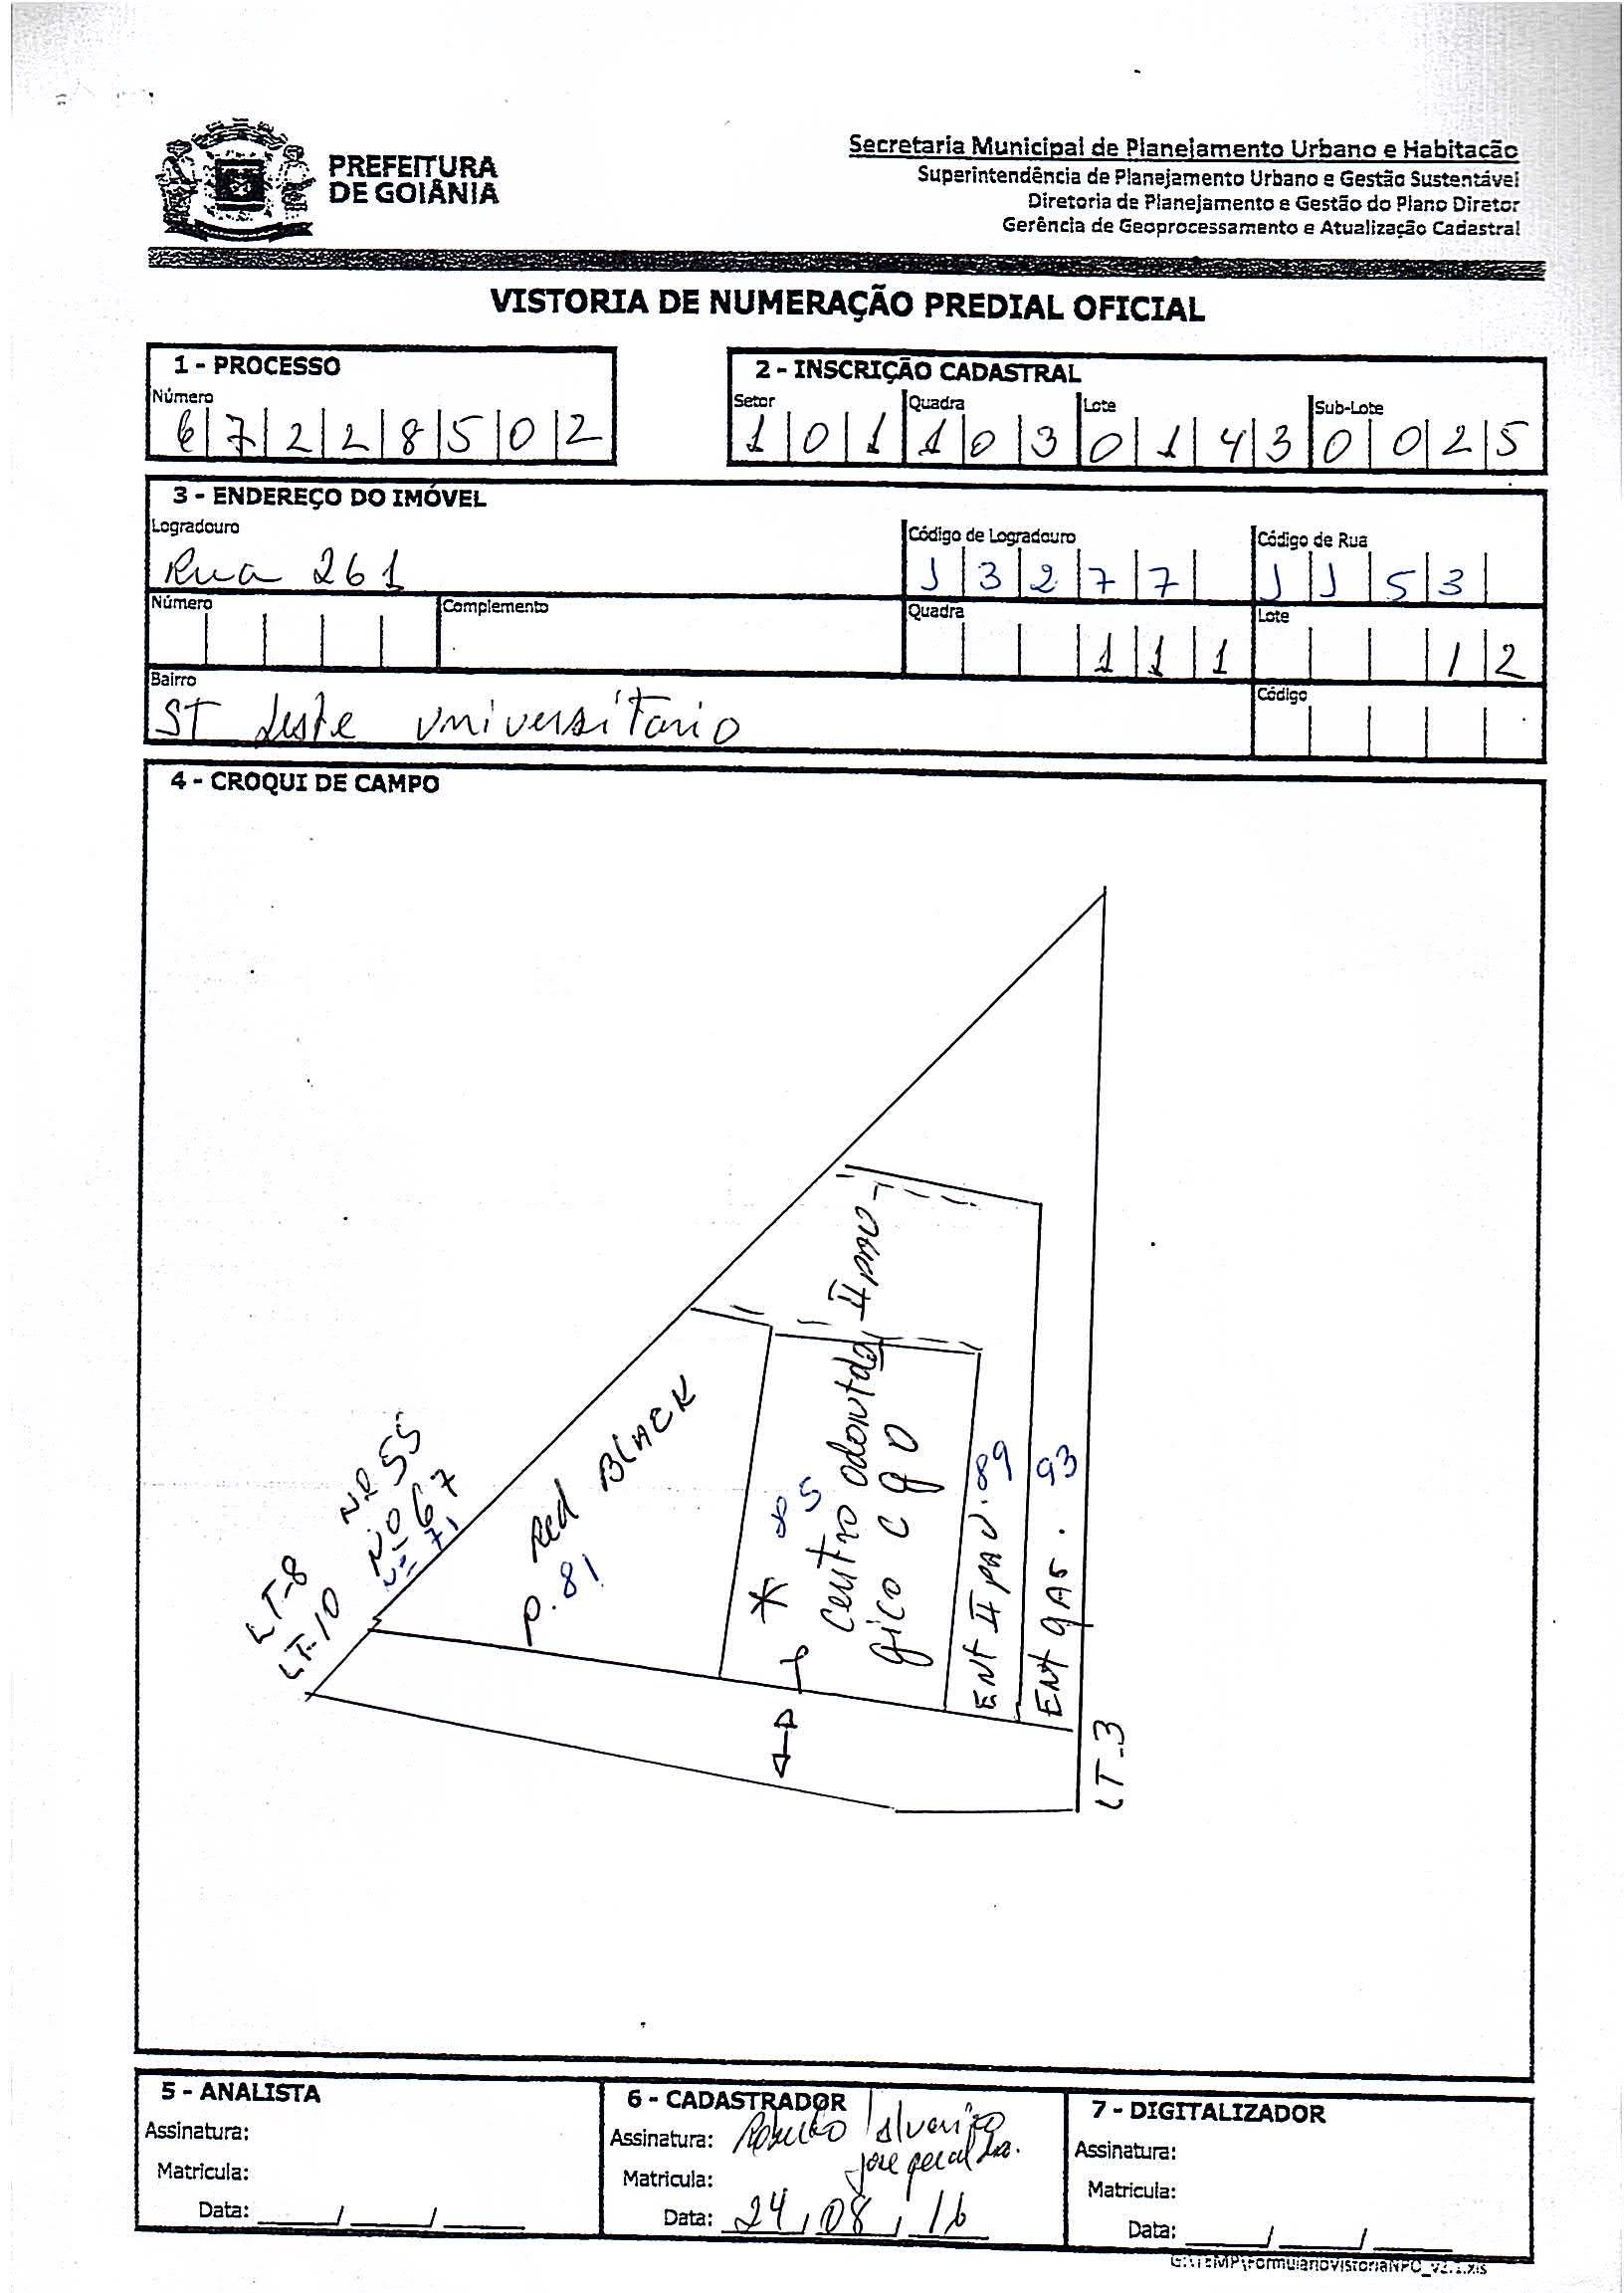 PREFEITURA
DE GOIÂNIA
Secretaria Municipal de Planejamento Urbano e Habitação
Superintendência de Planejamento Urbano e Gestão Sustentável
Diretoria de Planejamento e Gestão do Plano Diretor
Gerência de Geoprocessamento e Atualização Cadastral
VISTORIA DE NUMERAÇÃO PREDIAL OFICIAL
1 - PROCESSO
Número
67228502
2 - INSCRIÇÃO CADASTRAL
Setor Quadra Lote Sub-Lote
101 103 0143 0025
3 - ENDEREÇO DO IMÓVEL
Logradouro Código de Logradouro Código de Rua
Rua 261 J3277 JJ53
Número Complemento Quadra Lote
111 12
Bairro Código
ST Leste Universitario
4 - CROQUI DE CAMPO
II PAV
LT-8 NR 55
LT-10 Nº 67
Nº 71
Red BLACK
P.81
* 85
Centro odontolo
gico C g O
ENT II PAV. 89
ENT gAr. 93
LT-3
5 - ANALISTA
Assinatura:
Matricula:
Data: ___/___/___
6 - CADASTRADOR
Assinatura:
Matricula:
Data: 24/08/16
7 - DIGITALIZADOR
Assinatura:
Matricula:
Data: ___/___/___
G:\TEMP\FormularioVistoriaNPO_v2.1.xls